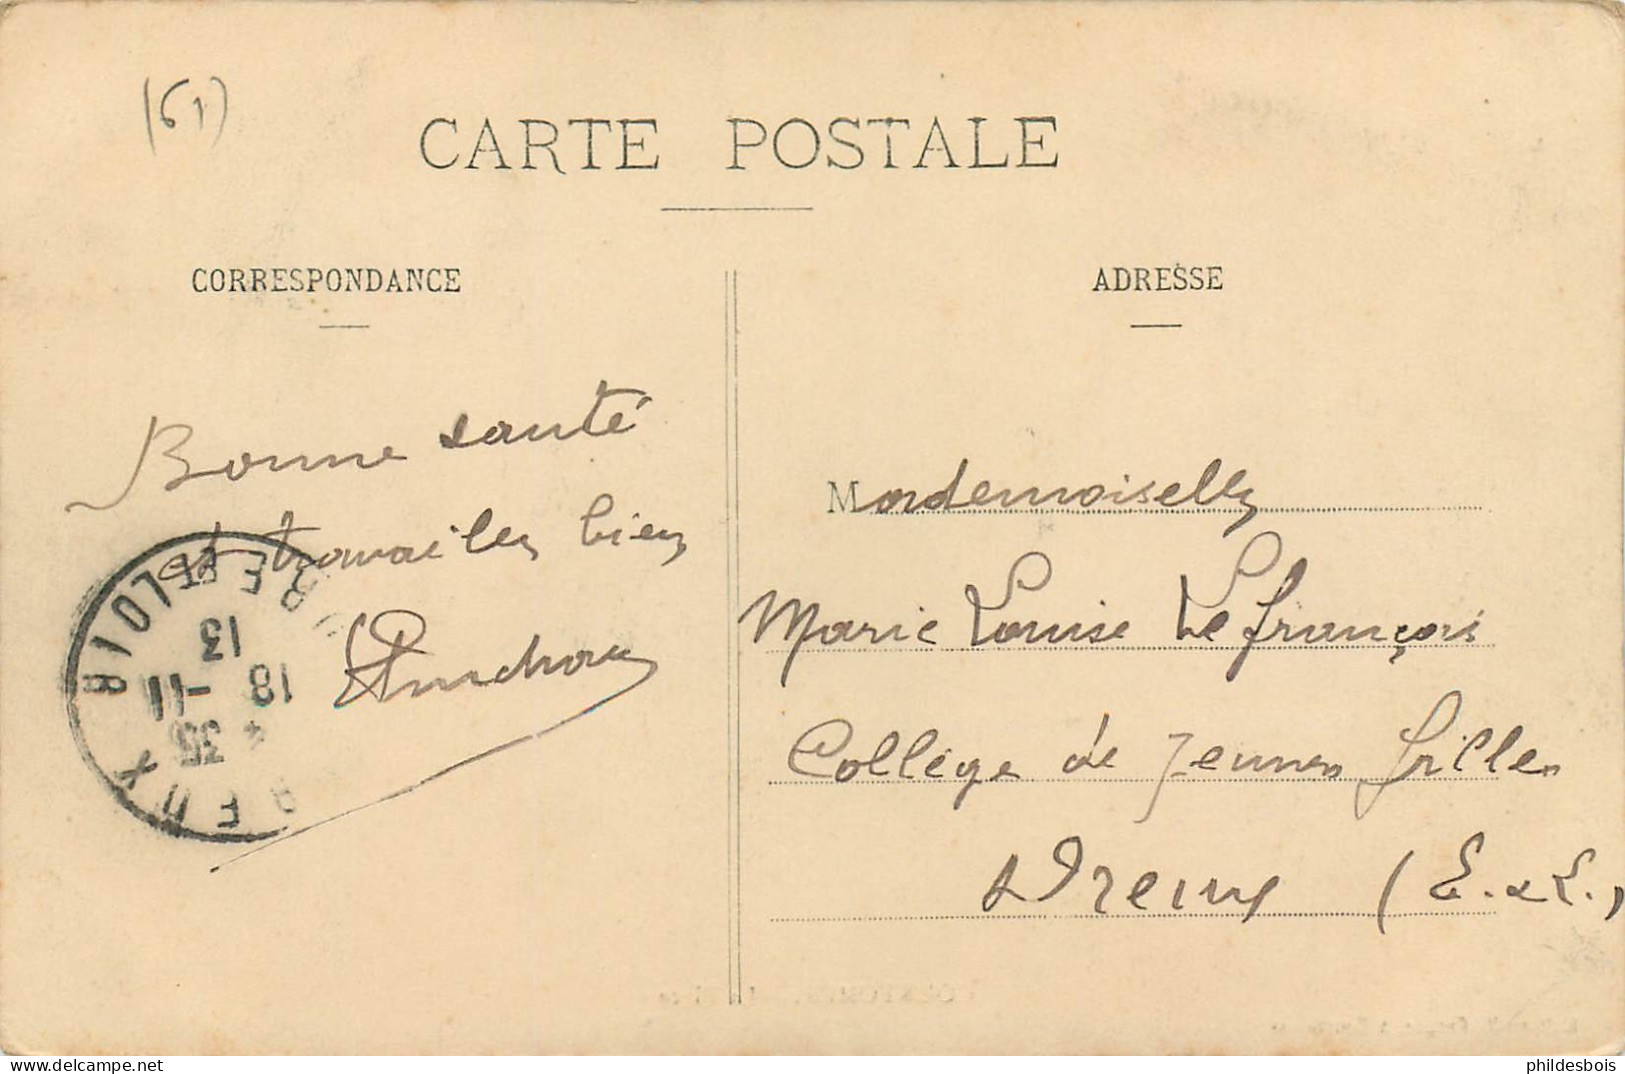 (61)
CARTE POSTALE
CORRESPONDANCE
ADRESSE
Bonne santé
et travailles bien
Mademoiselle
Marie Louise Lefrançois
Collège de Jeunes filles
Dreux (E. & L.)
DREUX
EURE ET LOIR
4 35
18 -11
13
phildesbois